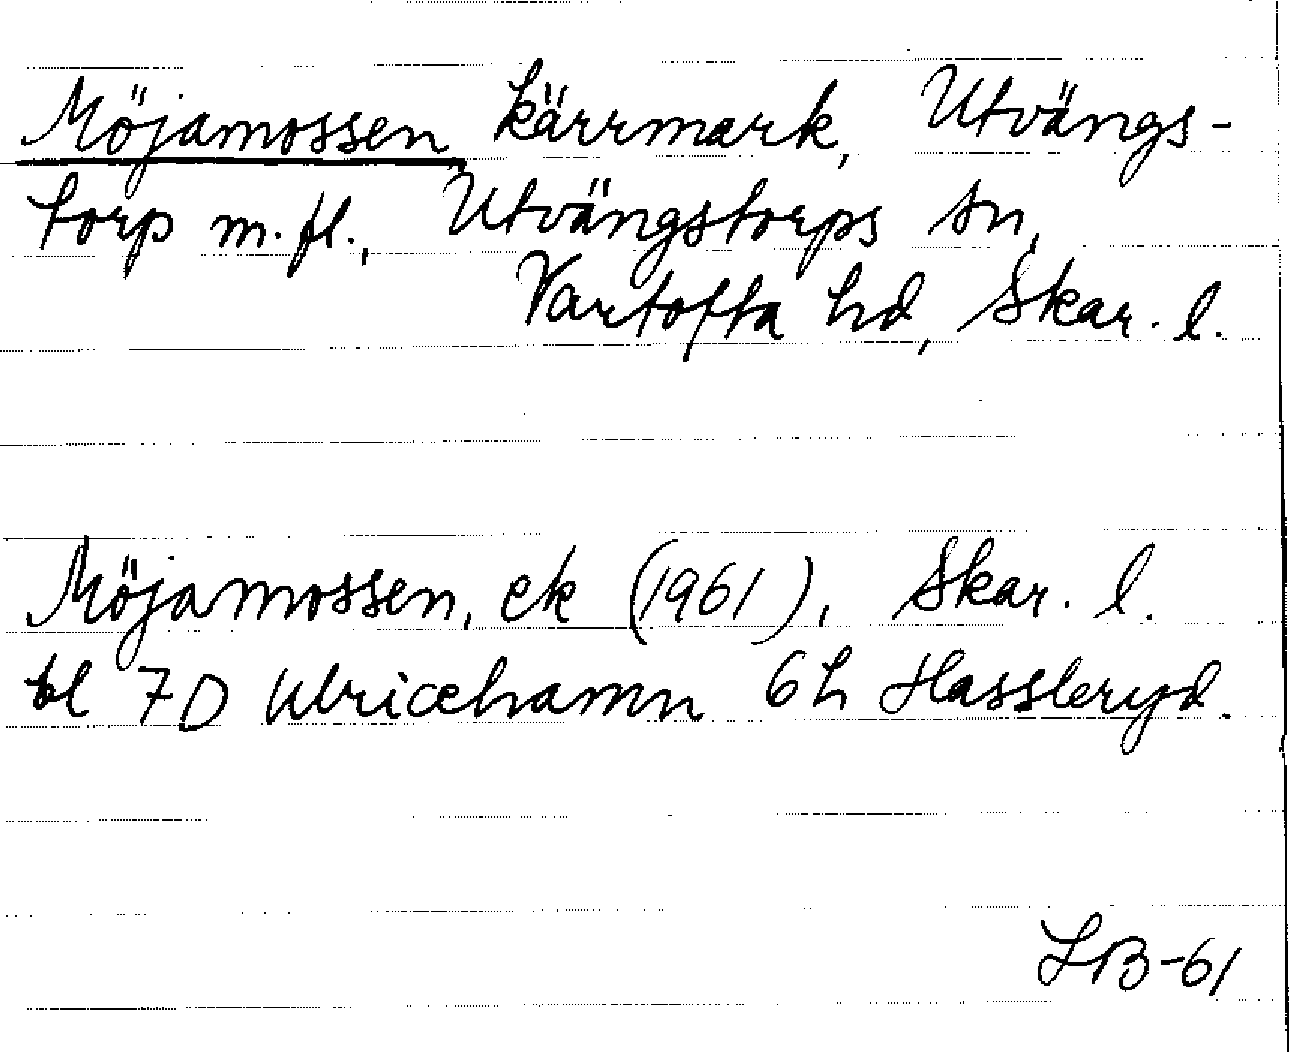 Möjamossen, kärrmark, Utvängs-
torp m.fl., Utvängstorps sn,
Vartofta hd, Skar. l.
Möjamossen, ek (1961), Skar. l.
bl 7D Ulricehamn 6h Hassleryd.
LB-61